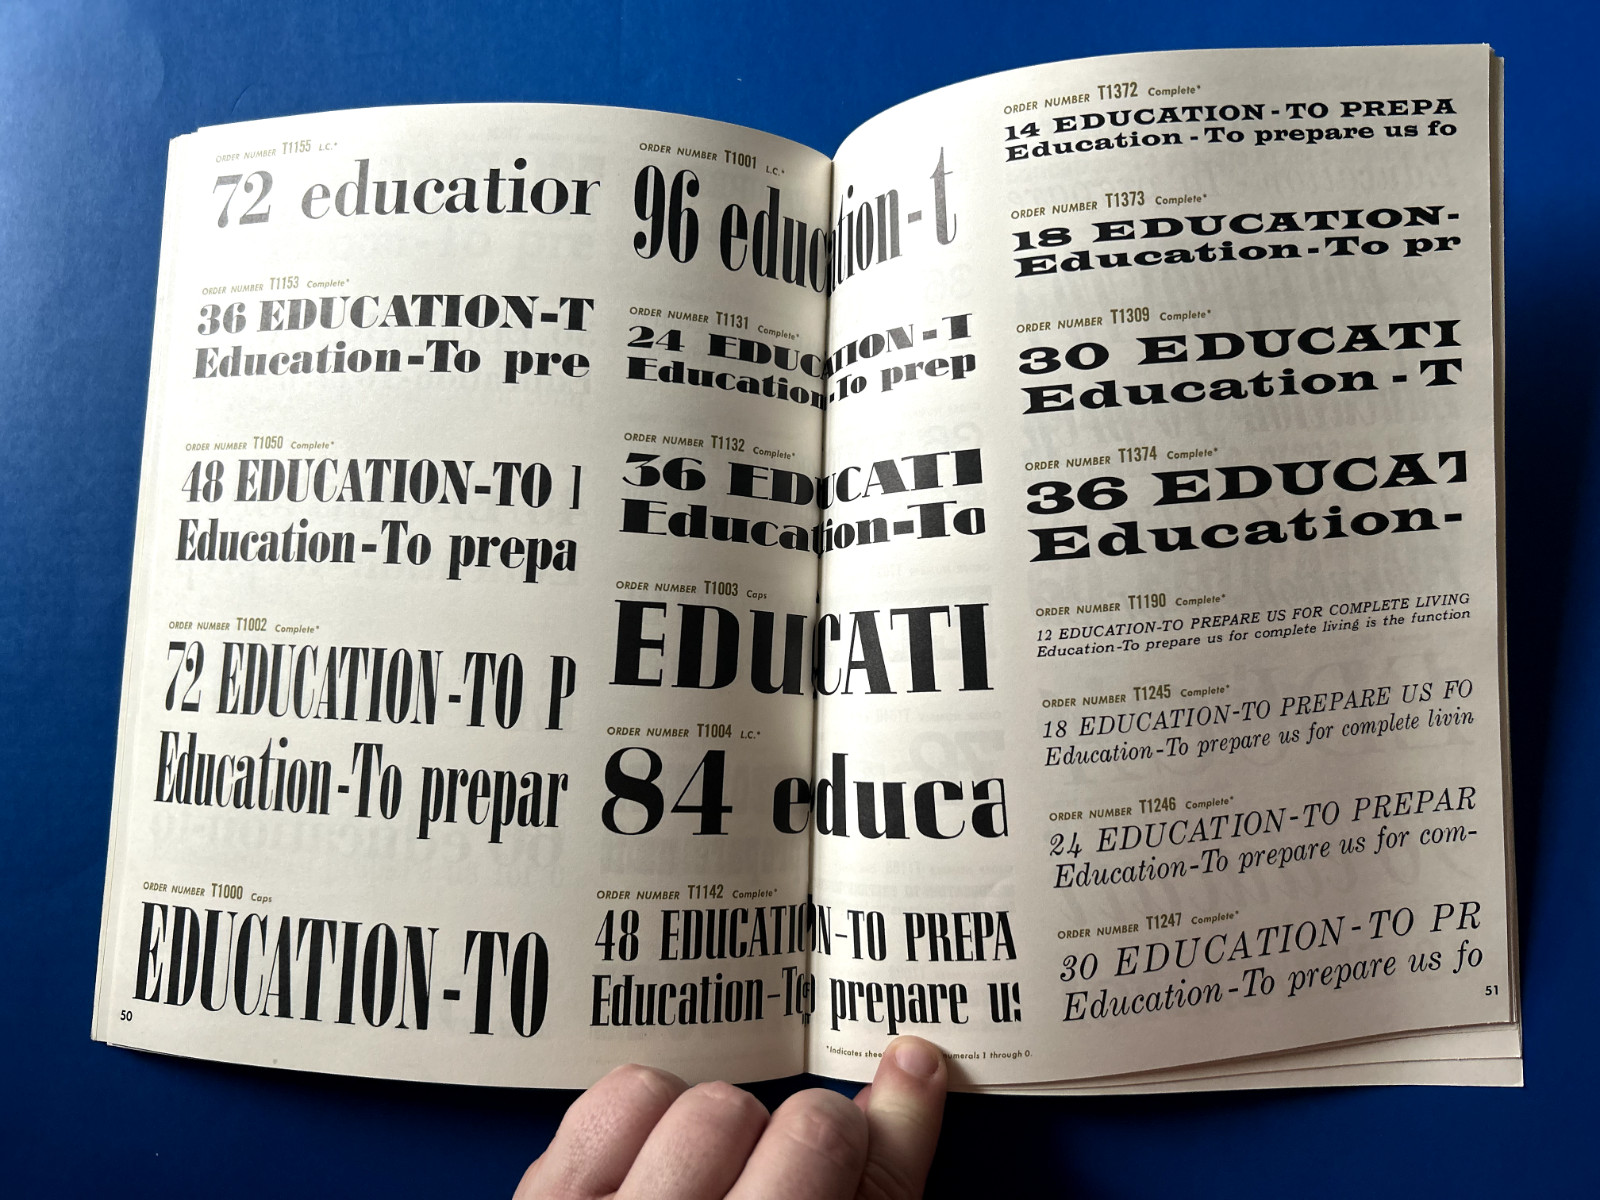 ORDER NUMBER T1155 L.C.*
72 education
ORDER NUMBER T1153 Complete*
36 EDUCATION-T
Education-To pre
ORDER NUMBER T1050 Complete*
48 EDUCATION-TO
Education-To prepa
ORDER NUMBER T1002 Complete*
72 EDUCATION-TO P
Education-To prepar
ORDER NUMBER T1000 Caps
EDUCATION-TO
50
ORDER NUMBER T1001 L.C.*
96 education-t
ORDER NUMBER T1131 Complete*
24 EDUCATION-T
Education-To prep
ORDER NUMBER T1132 Complete*
36 EDUCATI
Education-To
ORDER NUMBER T1003 Caps
EDUCATI
ORDER NUMBER T1004 L.C.*
84 educa
ORDER NUMBER T1142 Complete*
48 EDUCATION-TO PREPA
Education-To prepare us
*Indicates numerals 1 through 0.
ORDER NUMBER T1372 Complete*
14 EDUCATION-TO PREPA
Education-To prepare us fo
ORDER NUMBER T1373 Complete*
18 EDUCATION-
Education-To pr
ORDER NUMBER T1309 Complete*
30 EDUCATI
Education-T
ORDER NUMBER T1374 Complete*
36 EDUCAT
Education-
ORDER NUMBER T1190 Complete*
12 EDUCATION-TO PREPARE US FOR COMPLETE LIVING
Education-To prepare us for complete living is the function
ORDER NUMBER T1245 Complete*
18 EDUCATION-TO PREPARE US FO
Education-To prepare us for complete livin
ORDER NUMBER T1246 Complete*
24 EDUCATION-TO PREPAR
Education-To prepare us for com-
ORDER NUMBER T1247 Complete*
30 EDUCATION-TO PR
Education-To prepare us fo
51